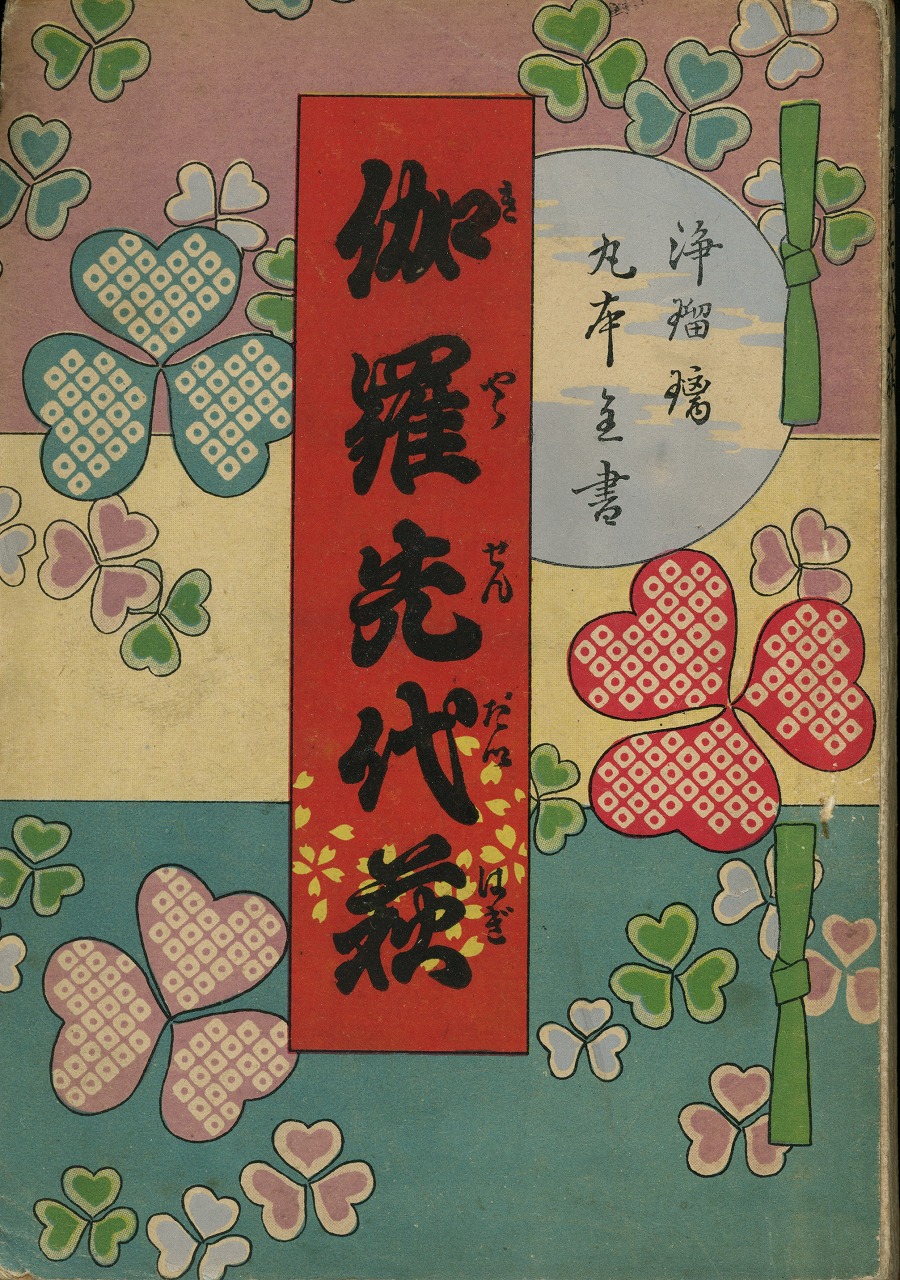 浄瑠璃
丸本全書
伽羅先代萩
き やら せん だい はぎ